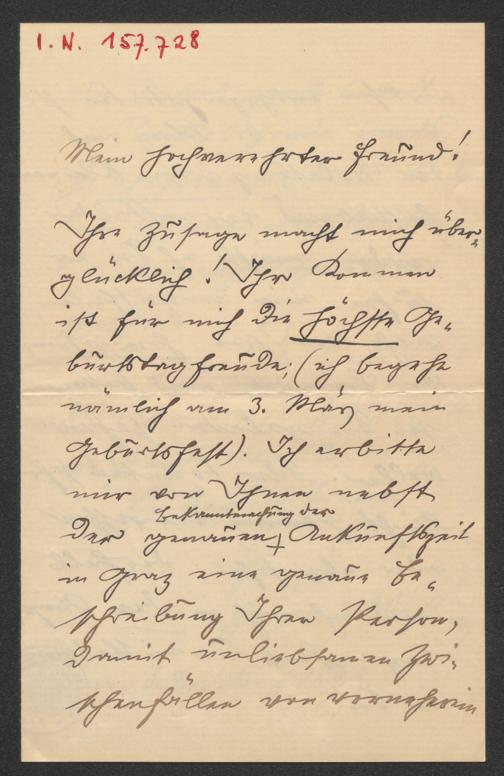 I. N. 157.728
Mein hochverehrter Freund!
Ihre Zusage macht mich über-
glücklich! Ihr Kommen
ist für mich die höchste Ge-
burtstagfreude; (ich begehe
nämlich am 3. März mein
Geburtsfest). Ich erbitte
mir von Ihnen nebst
Bekanntmachung der
der genauen Ankunftszeit
in Graz eine genaue Be-
schreibung Ihrer Person,
damit unliebsamen Zwi-
schenfällen von vorneherein